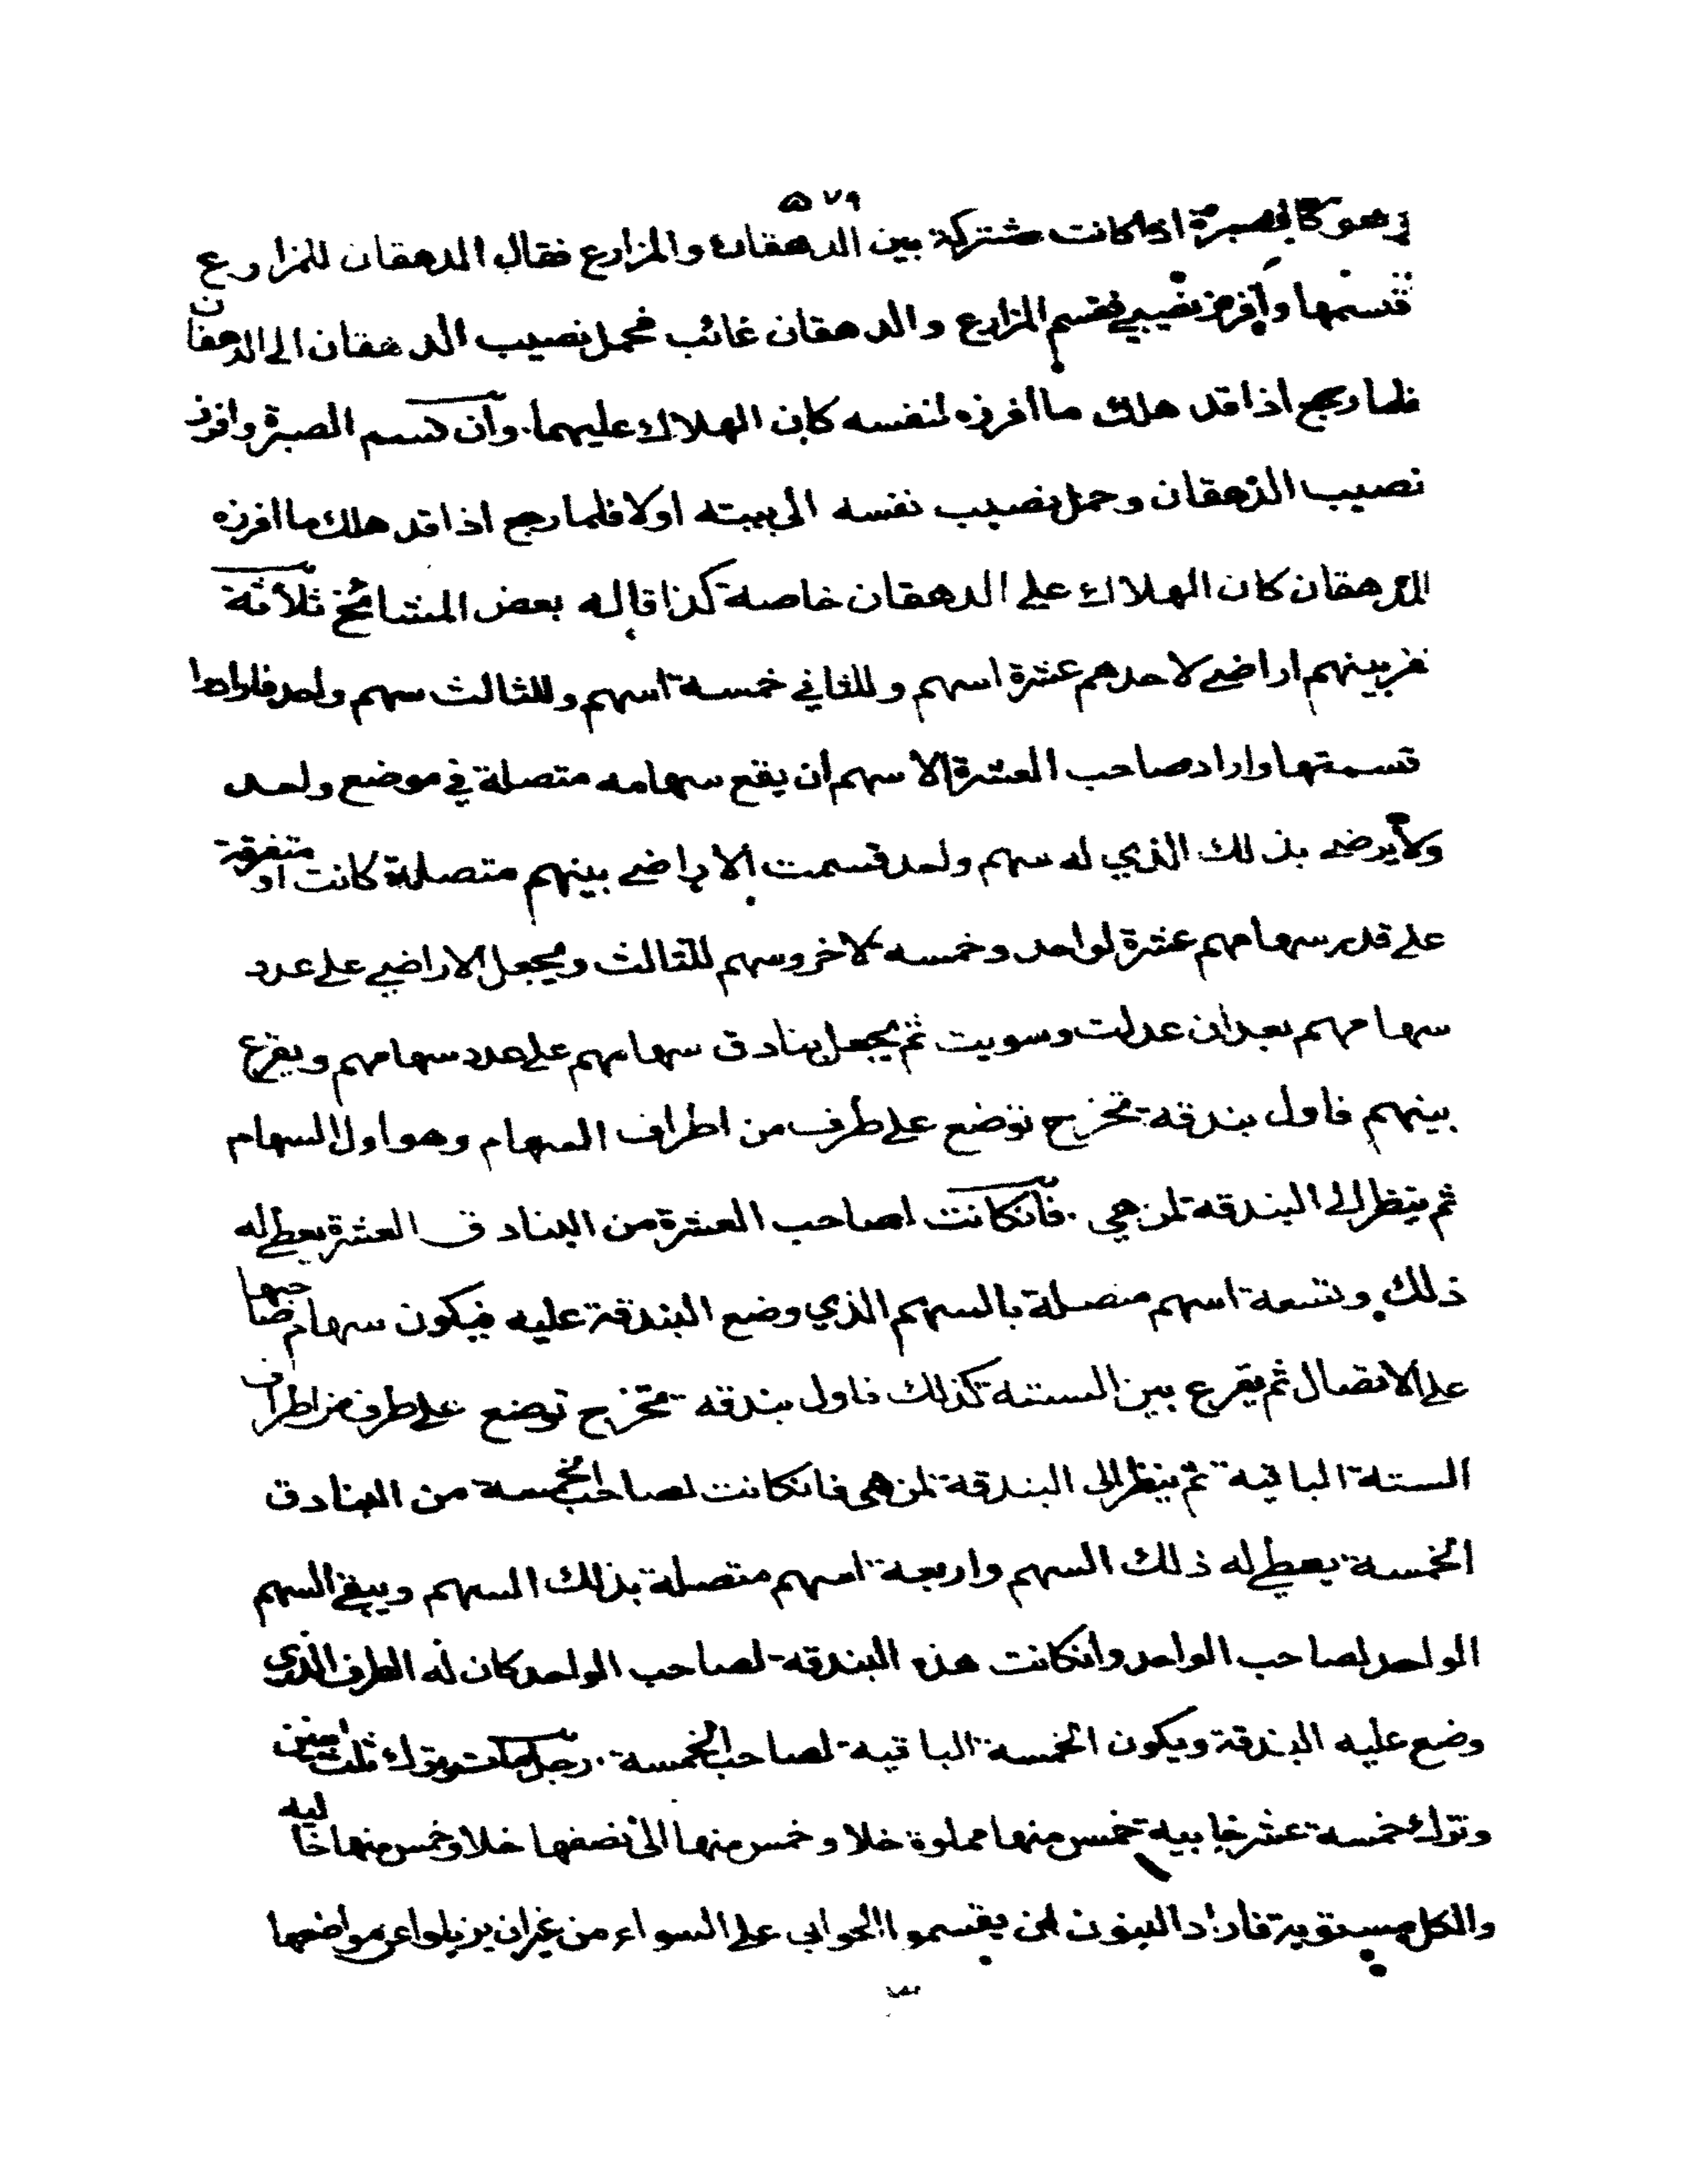 ٥٧٩
وهو كالصبرة اذا كانت مشتركة بين الدهقان والمزارع فقال الدهقان للمزارع
قسمها وافرز نصيبي فقسم المزارع والدهقان غائب فحمل نصيب الدهقان الى الدهقان
فلما رجع اذا قد هلك ما افرزه لنفسه كان الهلاك عليهما. وان قسم الصبرة وافرز
نصيب الدهقان وحمل نصيب نفسه الى بيته اولا فلما رجع اذا قد هلك ما افرزه
للدهقان كان الهلاك على الدهقان خاصة كذا قاله بعض المشائخ ثلاثة
نفر بينهم اراضي لاحدهم عشرة اسهم وللثاني خمسة اسهم وللثالث سهم واحد فارادوا
قسمتها واراد صاحب العشرة الاسهم ان يقع سهامه متصلة في موضع واحد
ولا يرضى بذلك الذي له سهم واحد قسمت الاراضي بينهم متصلة كانت او متفرقة
على قدر سهامهم عشرة لواحد وخمسه لاخر وسهم للثالث ويجعل الاراضي على عدد
سهامهم بعد ان عدلت وسويت ثم يجعل بنادق سهامهم على عدد سهامهم ويقرع
بينهم فاول بندقة تخرج توضع على طرف من اطراف السهام وهو اول السهام
ثم ينظر الى البندقة لمن هي. فانكانت لصاحب العشرة من البنادق العشرة يعطى له
ذلك وتسعة اسهم متصلة بالسهم الذي وضع البندقة عليه فيكون سهام صاحبها
على الاتصال ثم يقرع بين الستة كذلك فاول بندقه تخرج توضع على طرف من اطراف
الستة الباقية ثم ينظر الى البندقة لمن هي فانكانت لصاحب الخمسة من البنادق
الخمسة يعطى له ذلك السهم واربعة اسهم متصلة بذلك السهم ويبقى السهم
الواحد لصاحب الواحد وانكانت هذه البندقة لصاحب الواحد كان له الطرف الذي
وضع عليه البندقة ويكون الخمسة الباقية لصاحب الخمسة. رجل مات وترك ثلث بنين
وترك خمسة عشر خابية خمس منها مملوة خلا وخمس منها الى نصفها خلا وخمس منها خاليه
والكل مستوية فاراد البنون ان يقسموا الخوابي على السواء من غير ان يزيلوا عن مواضعها